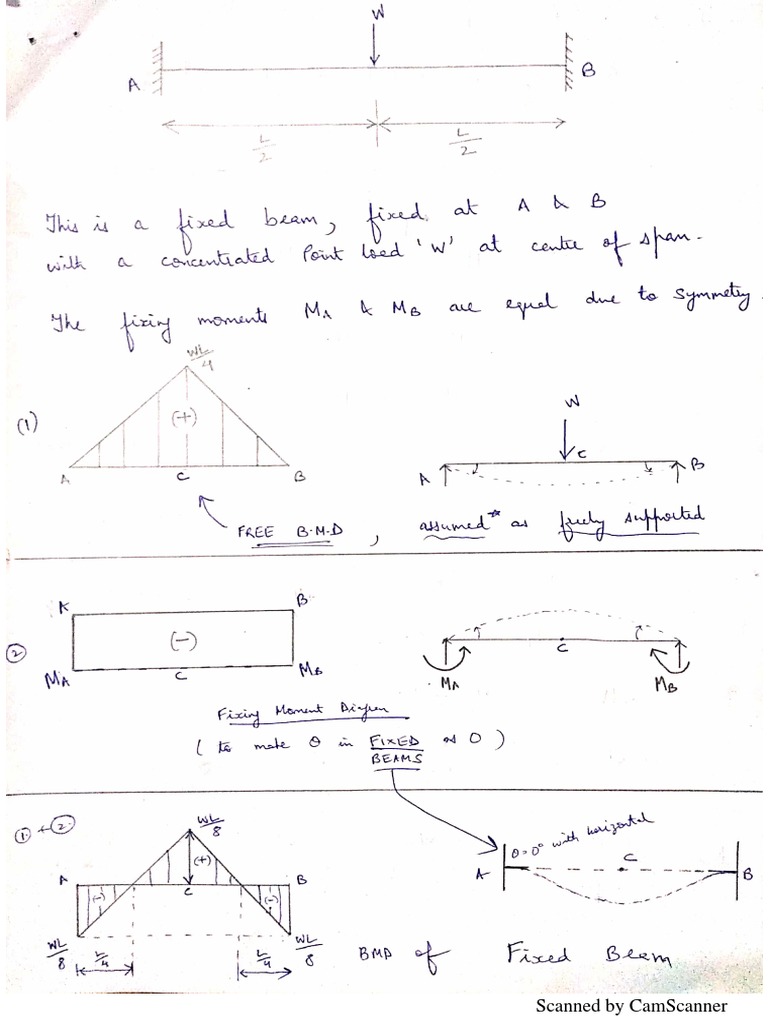 W
A
B
L/2
L/2
This is a fixed beam, fixed at A & B
with a concentrated Point load 'W' at centre of span.
The fixing moments MA & MB are equal due to symmetry.
WL/4
(1)
(+)
A
C
B
W
A
C
B
FREE B.M.D, assumed* as freely supported
②
A
B
(-)
MA
C
MB
C
MA
MB
Fixing Moment Diagram
(to make θ in FIXED ≈ 0)
BEAMS
① + ②
WL/8
A
(-)
(+)
C
(-)
B
WL/8
L/4
L/4
WL/8
θ=0° with horizontal
A
C
B
BMD of Fixed Beam
Scanned by CamScanner